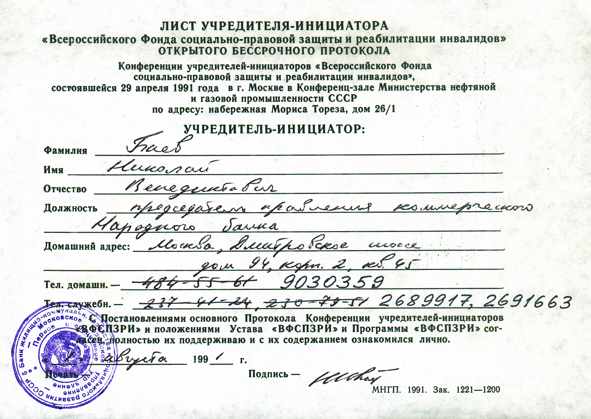 ЛИСТ УЧРЕДИТЕЛЯ-ИНИЦИАТОРА
«Всероссийского Фонда социально-правовой защиты и реабилитации инвалидов»
ОТКРЫТОГО БЕССРОЧНОГО ПРОТОКОЛА
Конференции учредителей-инициаторов «Всероссийского Фонда
социально-правовой защиты и реабилитации инвалидов»,
состоявшейся 29 апреля 1991 года в г. Москве в Конференц-зале Министерства нефтяной
и газовой промышленности СССР
по адресу: набережная Мориса Тореза, дом 26/1
УЧРЕДИТЕЛЬ-ИНИЦИАТОР:
Фамилия Баев
Имя Николай
Отчество Венедиктович
Должность председатель правления коммерческого
Народного банка
Домашний адрес: Москва, Дмитровское шоссе
дом 94, корп. 2, кв. 45
Тел. домашн. — 484-55-61 9030359
Тел. служебн. — 237-41-24, 230-73-51 2689917, 2691663
С Постановлениями основного Протокола Конференции учредителей-инициаторов
«ВФСПЗРИ» и положениями Устава «ВФСПЗРИ» и Программы «ВФСПЗРИ» сог-
ласен, полностью их поддерживаю и с их содержанием ознакомился лично.
августа 1991 г.
Печать Подпись —
МНГП. 1991. Зак. 1221—1200